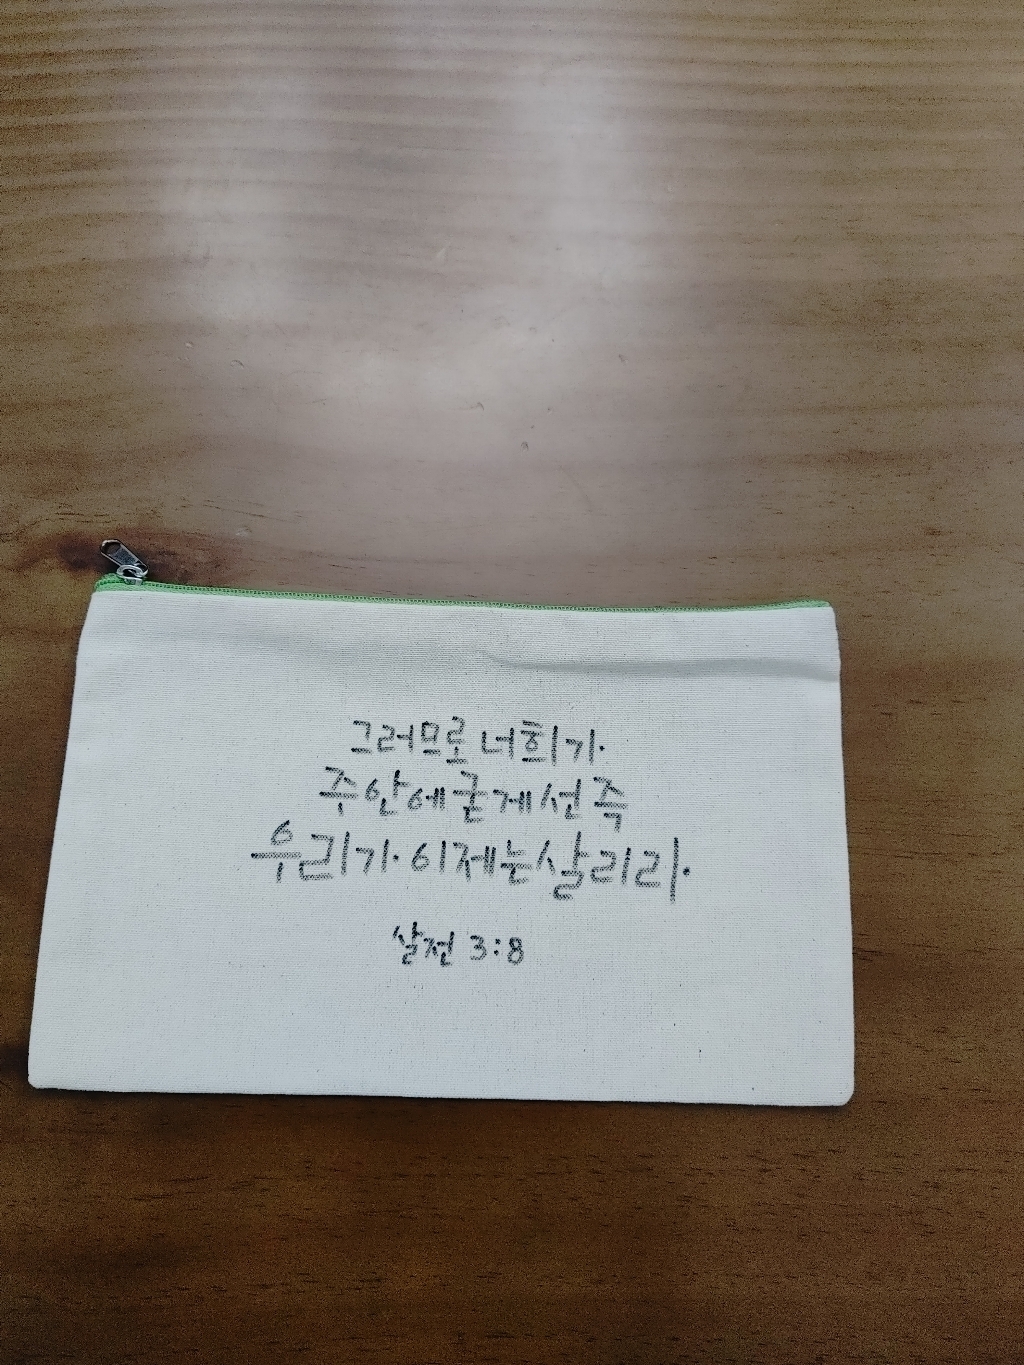 그러므로 너희가
주 안에 굳게 선 즉
우리가 이제는 살리라
살전 3:8